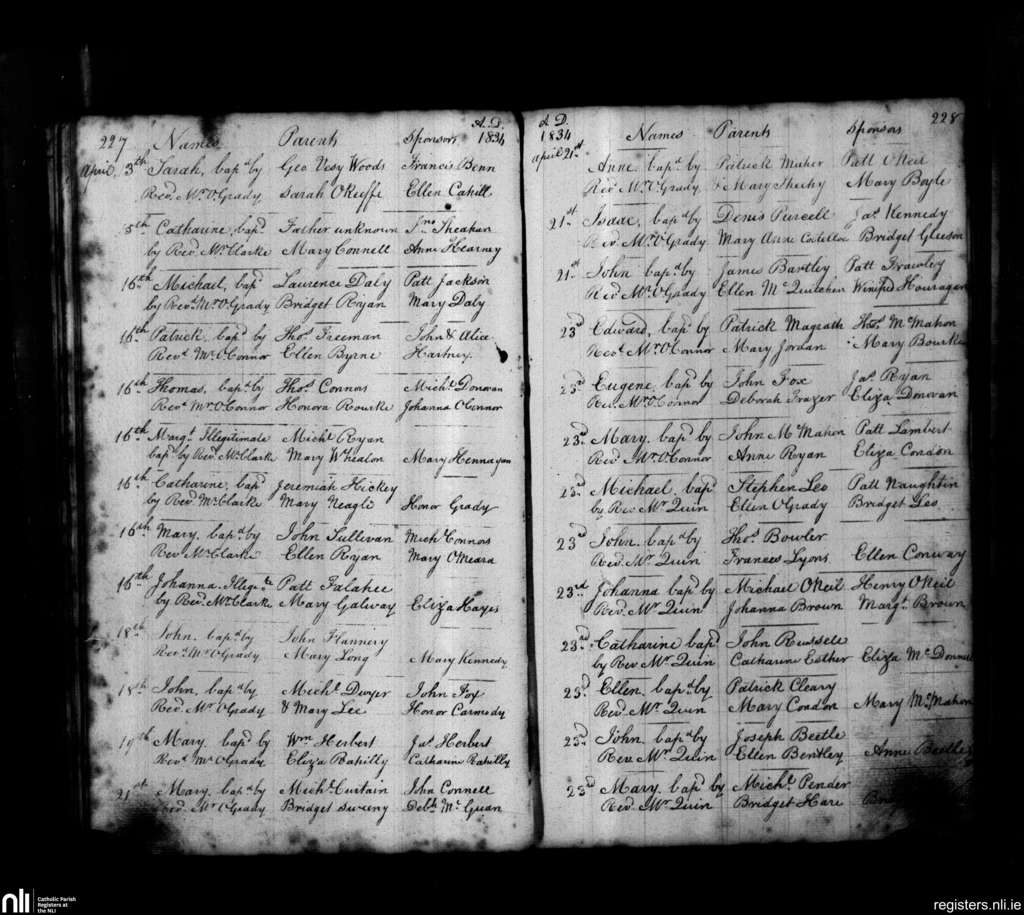 227 Names Parents Sponsors A.D. 1834
April 3th Sarah, bapd by Geo Vesy Woods Francis Benn
Revd Mr. O'Grady Sarah OKeiffe Ellen Cahill
5th Catharine, bapd Father unknown Jno Sheahan
by Revd Mr. Clarke Mary Connell Anne Kearney
16th Michael, bapd Laurence Daly Patt Jackson
by Revd Mr. O'Grady Bridget Ryan Mary Daly
16th Patrick, bapd by Thos Freeman John & Alice
Revd Mr. O'Connor Ellen Byrne Hartney
16th Thomas, bapd by Thos Connors Michl Donovan
Revd Mr. O'Connor Honora Rourke Johanna O'Connor
16th Margt Illegitimate Michl Ryan
bapd by Revd Mr. Clarke Mary Whealon Mary Hennagan
16th Catharine, bapd Jeremiah Hickey
by Revd Mr. Clarke Mary Neagle Honor Grady
16th Mary, bapd by John Sullivan Michl Connors
Revd Mr. Clarke Ellen Ryan Mary O'Meara
16th Johanna Illegte Patt Falahee
by Revd Mr. Clarke Mary Galway Eliza Hayes
18th John, bapd by John Flannery
Revd Mr. O'Grady Mary Long Mary Kennedy
18th John, bapd by Michl Dwyer John Fox
Revd Mr. O'Grady & Mary Lee Honor Carmody
19th Mary, bapd by Wm Herbert Jas Herbert
Revd Mr. O'Grady Eliza Rahilly Catharine Rahilly
21st Mary, bapd by Michl Curtain John Connell
Revd Mr. O'Grady Bridget Sweny Debh McGuan
A.D. 1834 Names Parents Sponsors 228
April 21st Anne, bapd by Patrick Maher Patt O'Neil
Revd Mr. O'Grady & Mary Sheehy Mary Boyle
21st Isaac, bapd by Denis Purcell Jas Kennedy
Rev. Mr. O'Grady Mary Anne Costelloe Bridget Gleeson
21st John bapd by James Bartley Patt Frawley
Revd Mr. O'Grady Ellen McQuitchen Winifred Houragan
23d Edward, bapd by Patrick Magrath Thos McMahon
Revd Mr. O'Connor Mary Jordan Mary Bourke
23d Eugene, bapd by John Fox Jas Ryan
Rev. Mr. O'Connor Deborah Frazer Eliza Donovan
23d Mary, bapd by John McMahon Patt Lambert
Revd Mr. O'Connor Anne Ryan Eliza Condon
23d Michael, bapd Stephen Leo Patt Naughtin
by Rev. Mr. Quin Ellen O'Grady Bridget Leo
23d John, bapd by Thos Bowler
Revd Mr. Quin Frances Lyons Ellen Conway
23rd Johanna bapd by Michael O'Neil Henry O'Neil
Rev. Mr Quin Johanna Brown Margt Brown
23d Catharine bapd John Russell
by Rev Mr. Quin Catharine Esther Eliza McDonnell
23d Ellen, bapd by Patrick Cleary
Revd Mr. Quin Mary Condon Mary McMahon
23d John, bapd by Joseph Beetle
Revd Mr. Quin Ellen Bentley Anne Beetle
23d Mary, bapd by Michl Pender
Revd Mr. Quin Bridget Hare
nli Catholic Parish
Registers at
the NLI
registers.nli.ie